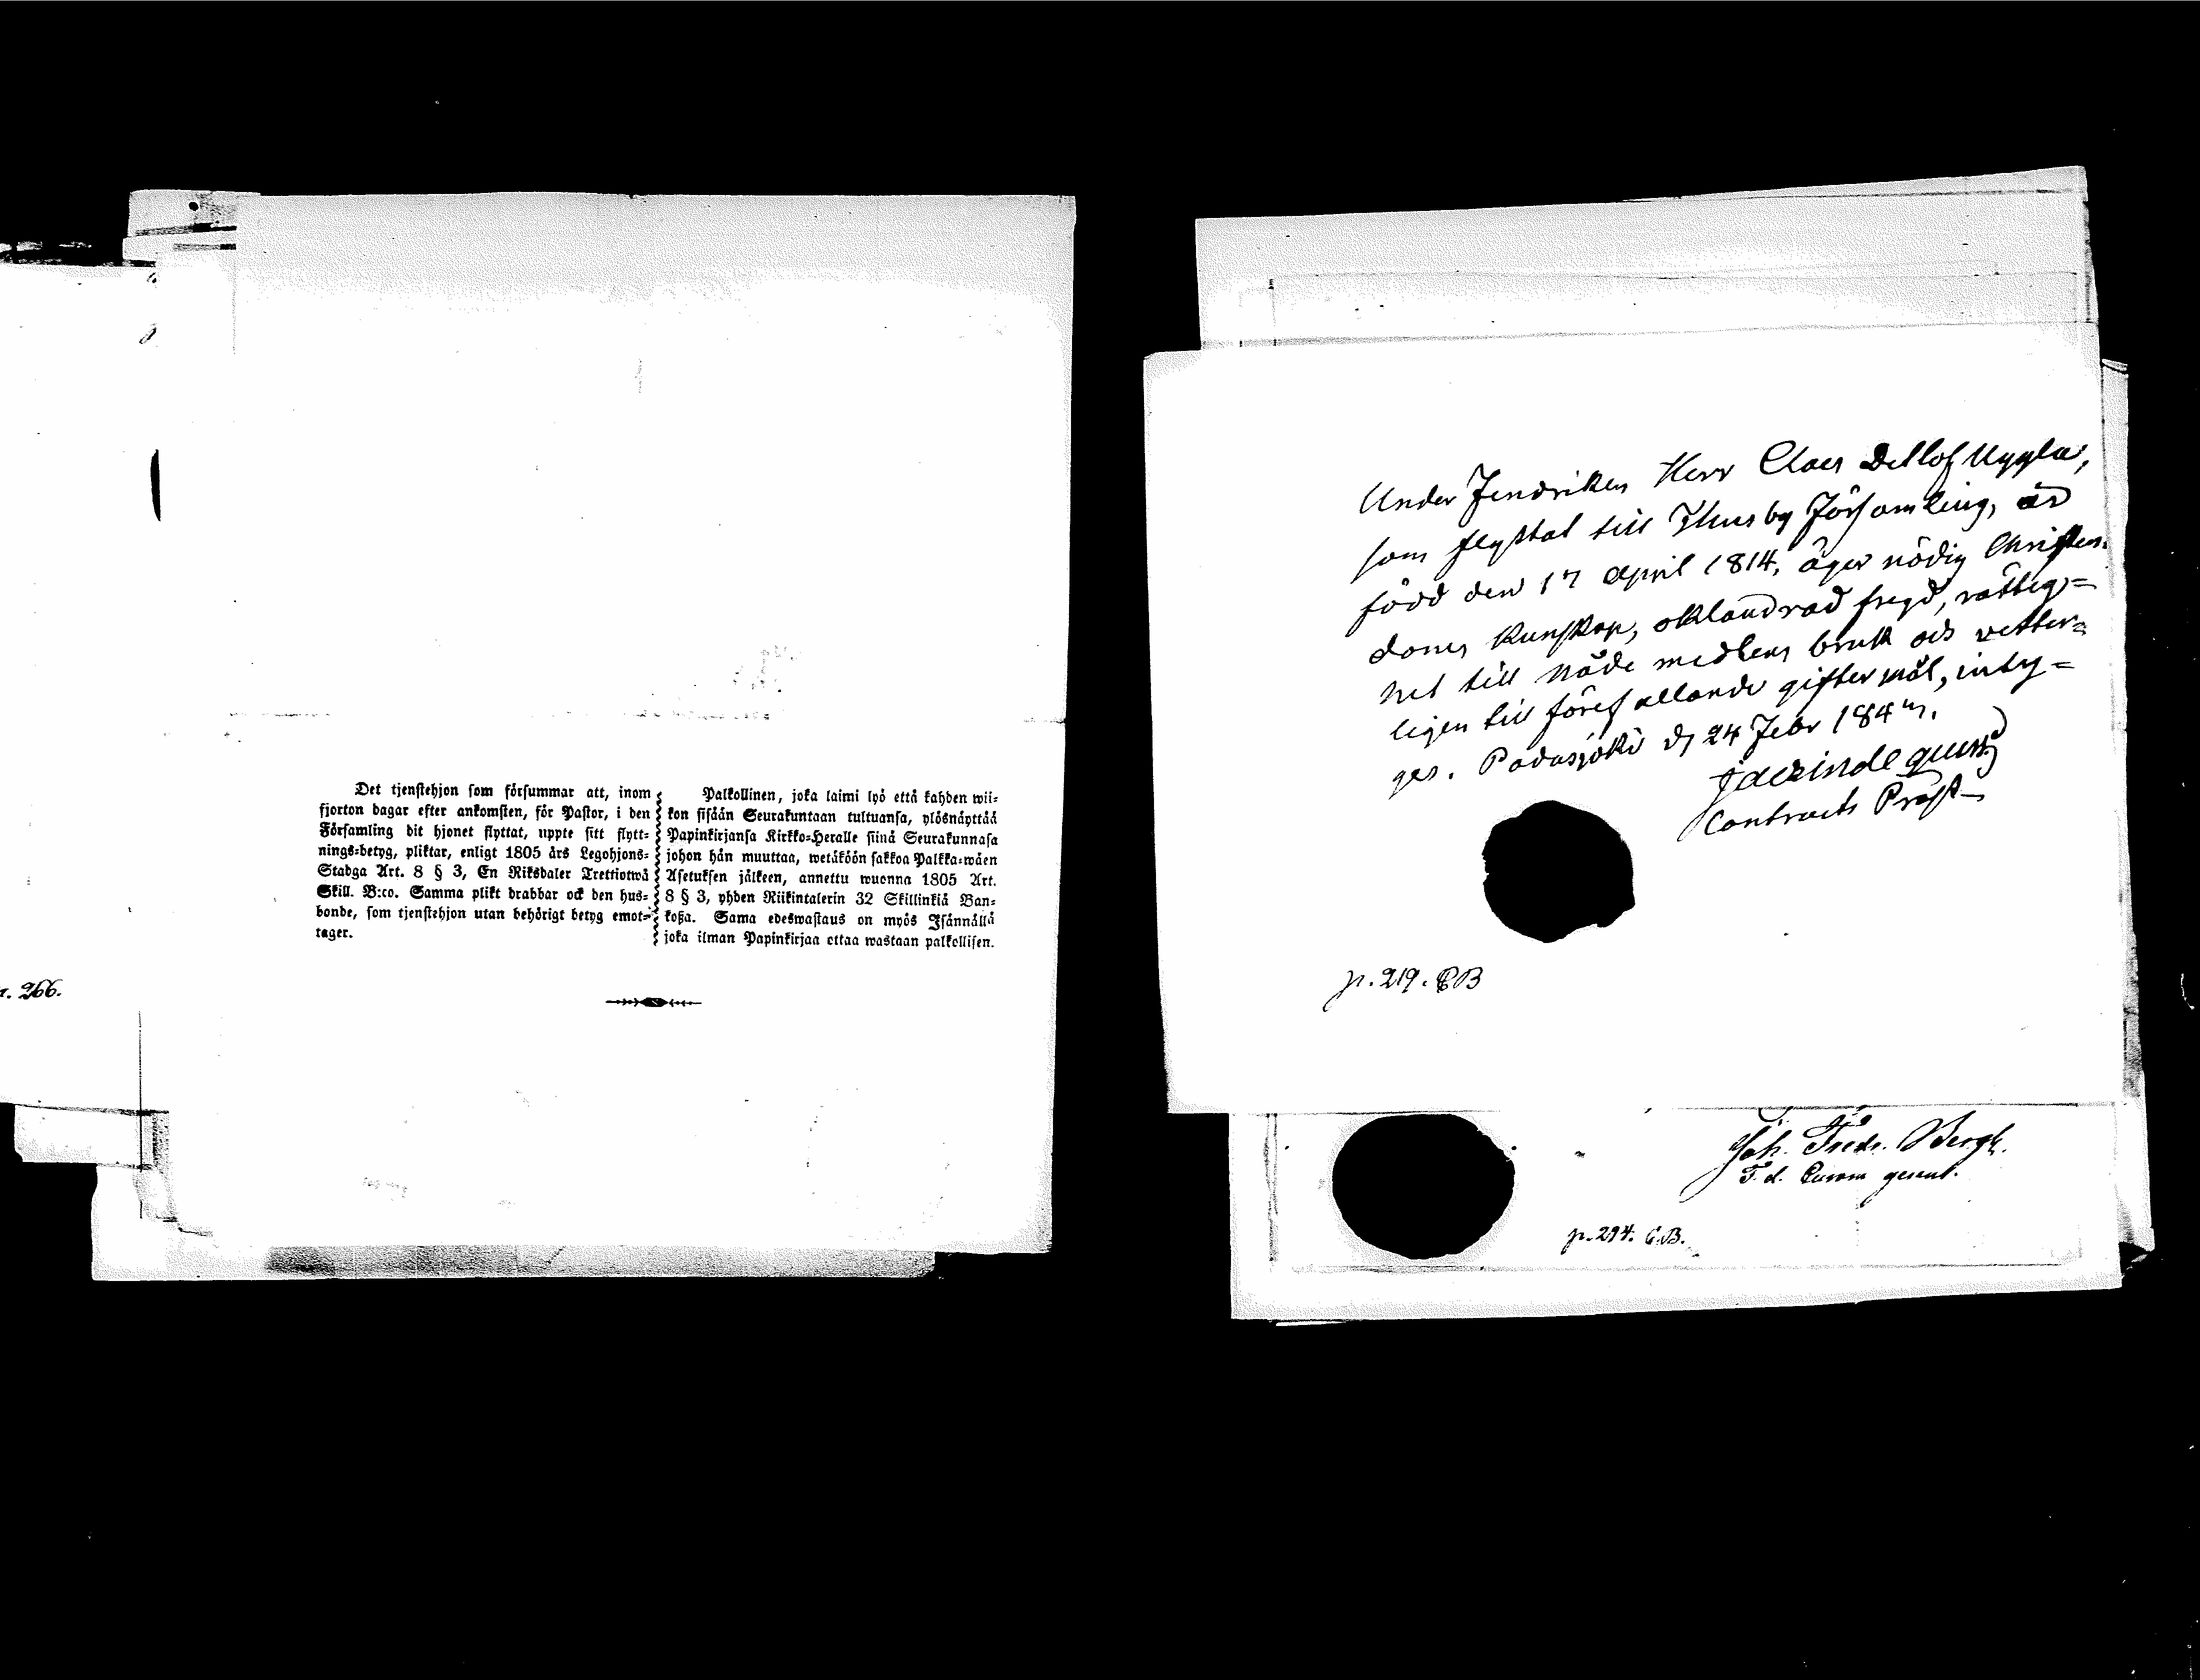 Det tjenstehjon som försummar att, inom
fjorton dagar efter ankomsten, för Pastor, i den
Församling dit hjonet flyttat, uppte sitt flytt-
nings-betyg, pliktar, enligt 1805 års Legohjons-
Stadga Art. 8 § 3, En Riksdaler Trettiotwå
Skill. B:co. Samma plikt drabbar ock den hus-
bonde, som tjenstehjon utan behörigt betyg emot-
tager.
Palkollinen, joka laimi lyö että kahden wii-
kon sisään Seurakuntaan tultuansa, ylösnäyttää
Papinkirjansa Kirkko-Heralle siinä Seurakunnasa
johon hän muuttaa, wetäköön sakkoa Palkka-wäen
Asetuksen jälkeen, annettu wuonna 1805 Art.
8 § 3, yhden Riikintalerin 32 Skillinkiä Ban-
koßa. Sama edeswastaus on myös Isännällä
joka ilman Papinkirjaa ottaa wastaan palkollisen.
266.
Under Fendriken Herr Claes Detlof Uggla,
som flyttat till Thusby Församling, är
född den 17 April 1814, äger nödig Christen-
doms kunskap, oklandrad fregd, rättig=
het till Nåde medlens bruk och
till förefallande giftermål, inty=
gas. Padasjoki d. 24 Febr 184
Contracts Prost
p. 219. CB
Joh. Fredr. Bergh.
T. d. Curam gerent.
p. 294. C.B.